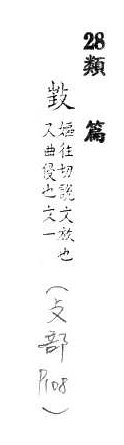 28類篇
嫗往切說文放也
又曲侵也文一
(攴部
P108)